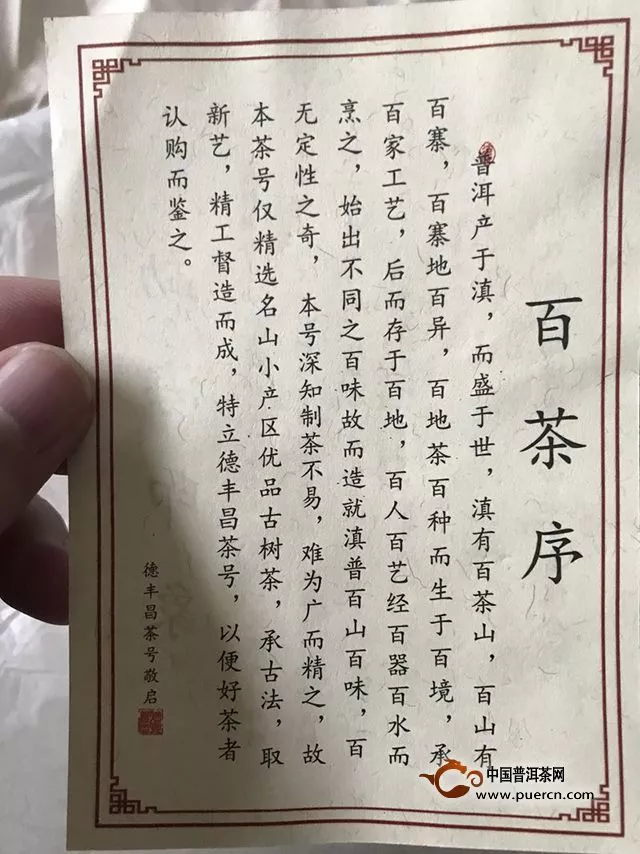 百茶序
普洱产于滇，而盛于世，滇有百茶山，百山有
百寨，百寨地百异，百地茶百种而生于百境，承
百家工艺，后而存于百地，百人百艺经百器百水而
烹之，始出不同之百味故而造就滇普百山百味，百
无定性之奇，本号深知制茶不易，难为广而精之，故
本茶号仅精选名山小产区优品古树茶，承古法，取
新艺，精工督造而成，特立德丰昌茶号，以便好茶者
认购而鉴之。
德丰昌茶号敬启
中国普洱茶网
www.puercn.com